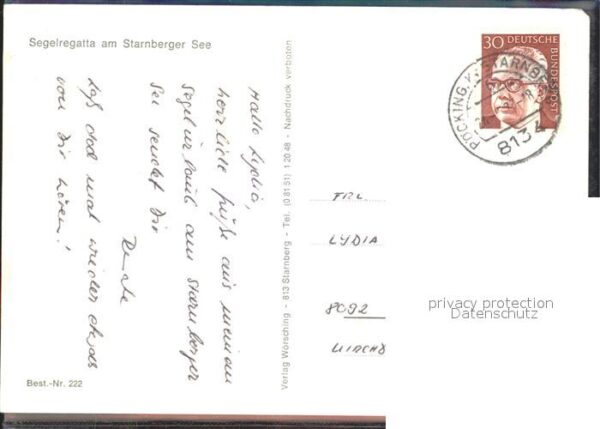 Segelregatta am Starnberger See
Hallo Lydia,
herrliche Grüße aus meinem
Segelurlaub am Starnberger
See sendet Dir
Renate
Laß doch mal wieder etwas
von Dir hören!
Best.-Nr. 222
Verlag Wörsching - 813 Starnberg - Tel. (0 81 51) 1 20 48 - Nachdruck verboten
30 DEUTSCHE BUNDESPOST
PÖCKING, K. STARNBERG
8134
FRL
LYDIA
8092
KIRCHD
privacy protection
Datenschutz